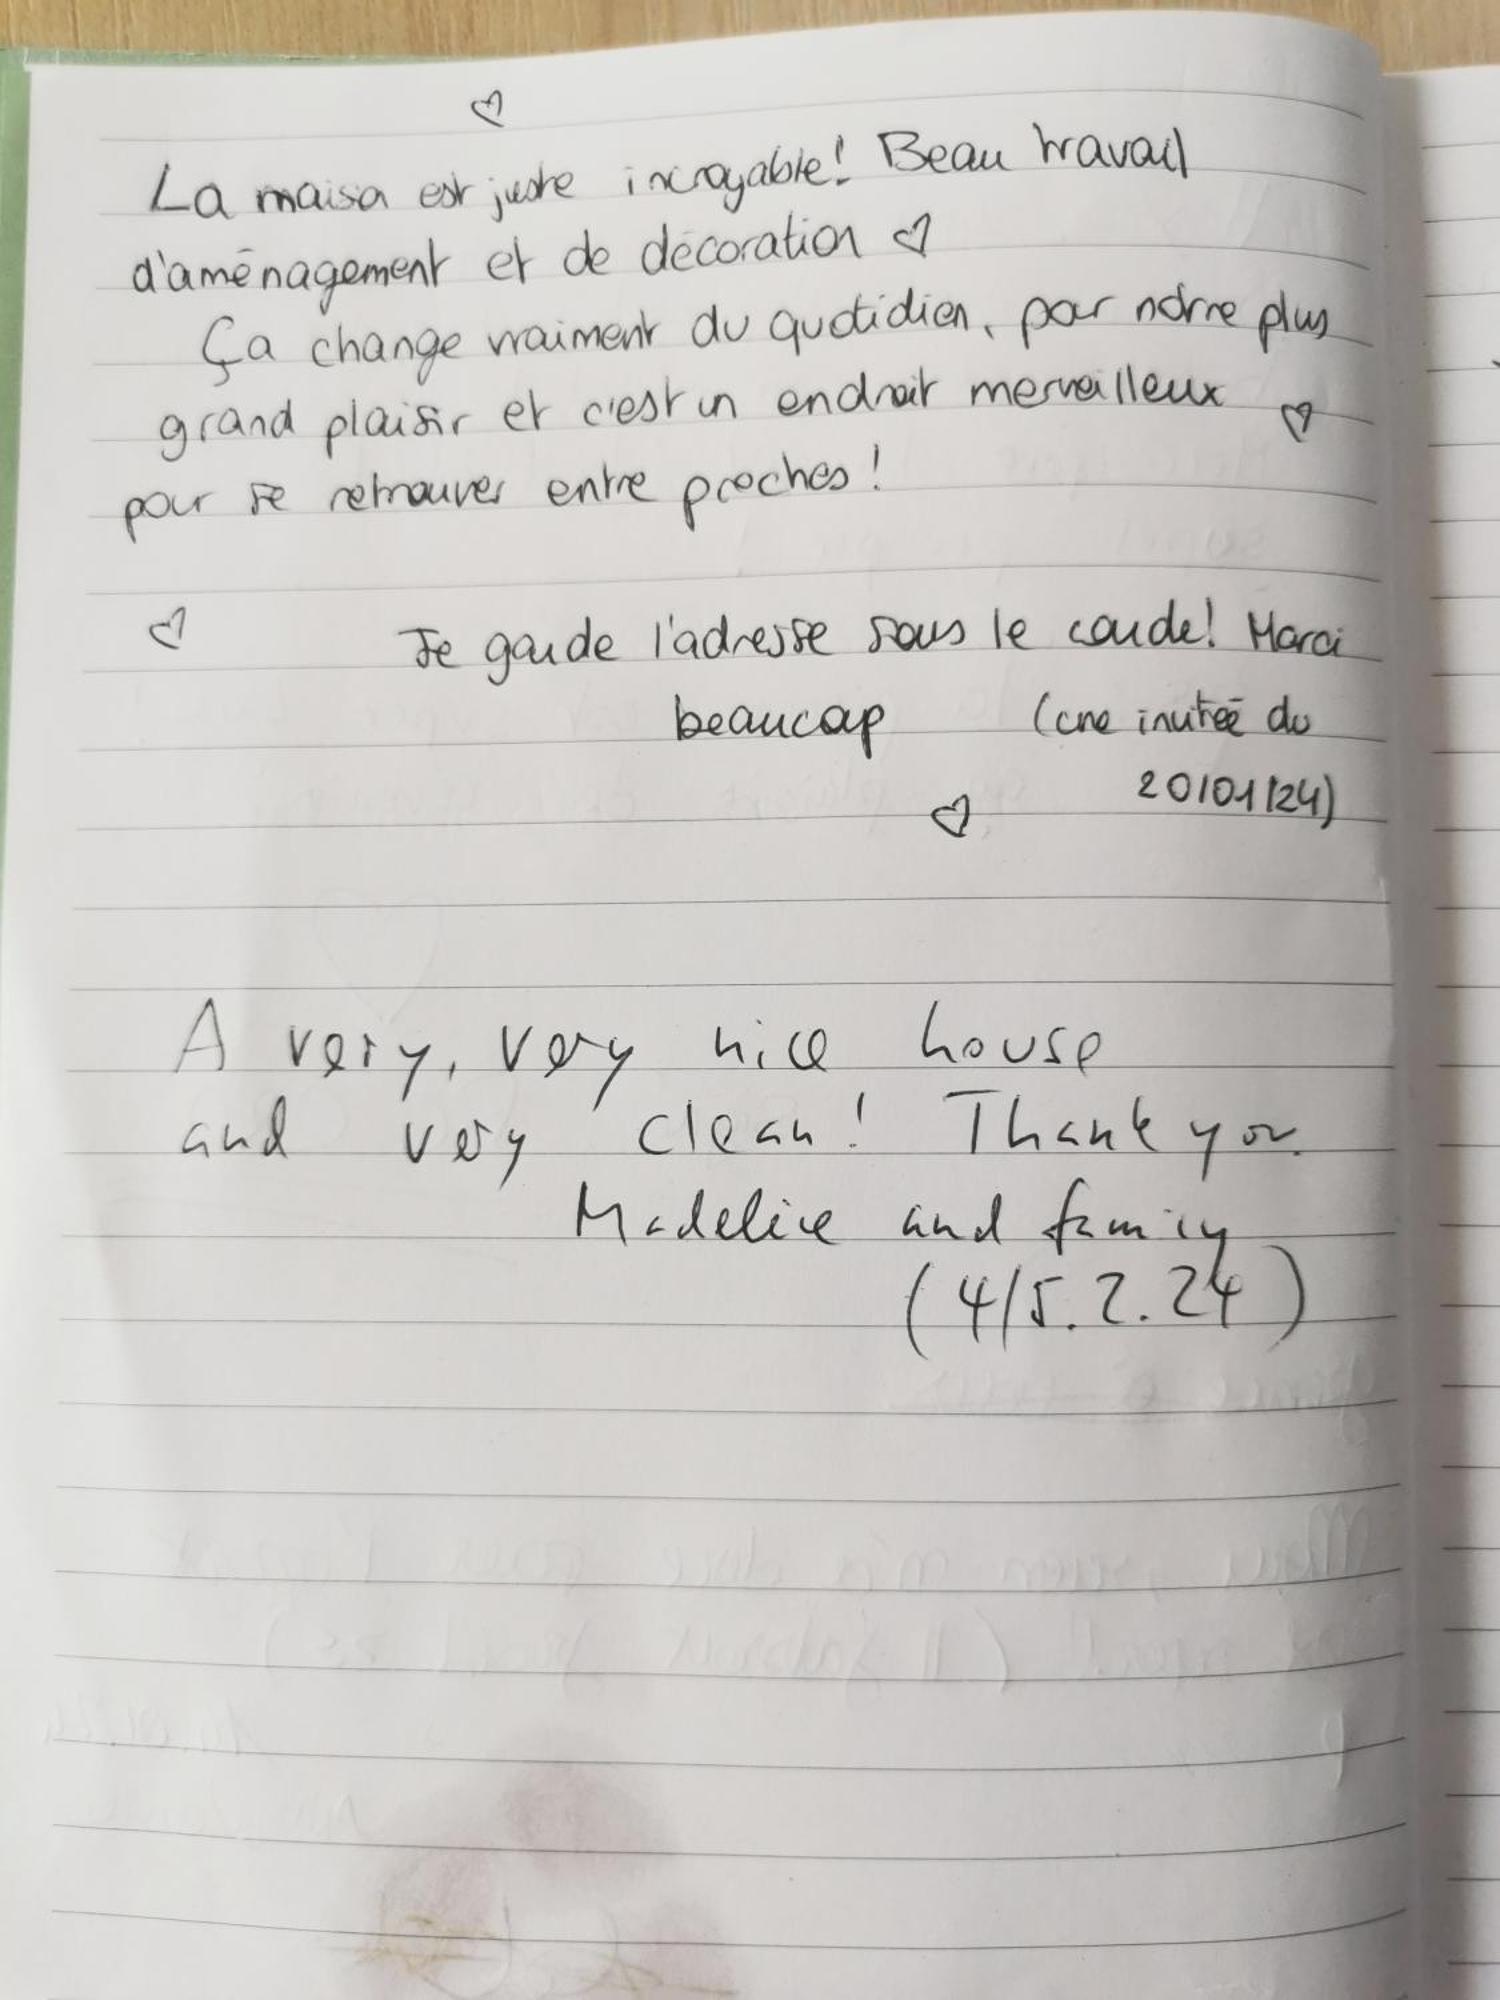 La maison est juste incroyable! Beau travail
d'aménagement et de décoration ♡
Ça change vraiment du quotidien, pour notre plus
grand plaisir et c'est un endroit merveilleux ♡
pour se retrouver entre proches!
♡ Je garde l'adresse sous le coude! Merci
beaucoup (une invitée du
20/01/24)
A very, very nice house
and very clean! Thank you.
and family
(4/5.2.24)